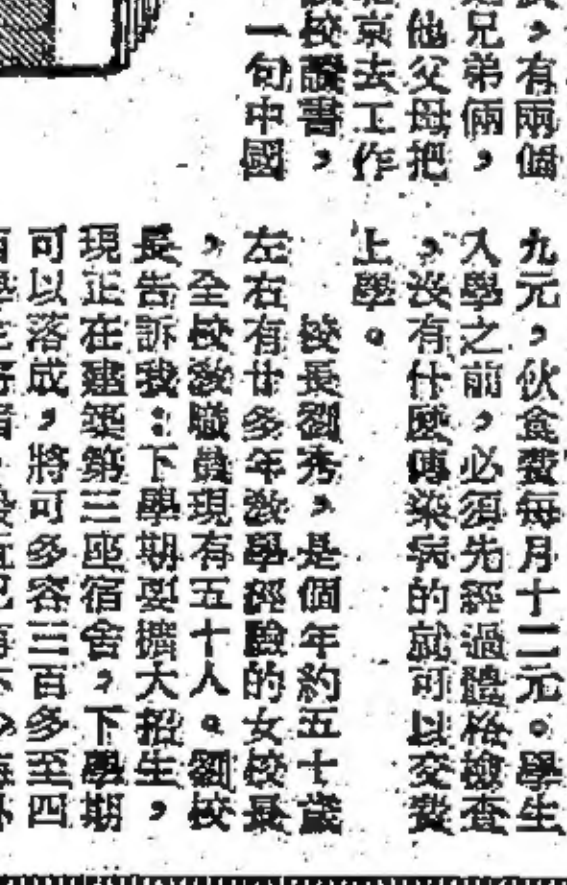 ，有兩個
兄弟倆，
他父母把
京去工作
校讀書，
一句中國
九元，伙食費每月十二元。學生
入學之前，必須先經過體格檢查
，沒有什麼傳染病的就可以交費
上學。
校長劉秀，是個年約五十歲
左右有廿多年教學經驗的女校長
，全校教職員現有五十人。劉校
長告訴我：下學期要擴大招生，
現正在建築第三座宿舍，下學期
可以落成，將可多容三百多至四